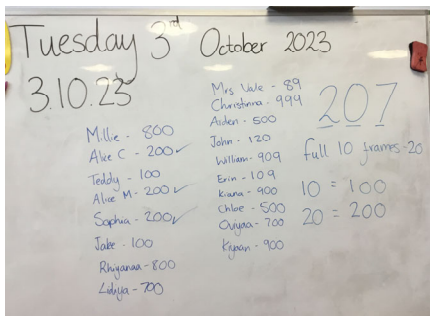 Tuesday 3rd October 2023
3.10.23
Millie - 800
Alice C - 200 ✓
Teddy - 100
Alice M - 200 ✓
Sophia - 200 ✓
Jake - 100
Rhiyanaa - 800
Lidiya - 700
Mrs Vale - 89
Christinna - 999
Aiden - 500
John - 120
William - 909
Erin - 109
Kiana - 900
Chloe - 500
Oviyaa - 700
Kiyaan - 900
207
full 10 frames - 20
10 = 100
20 = 200